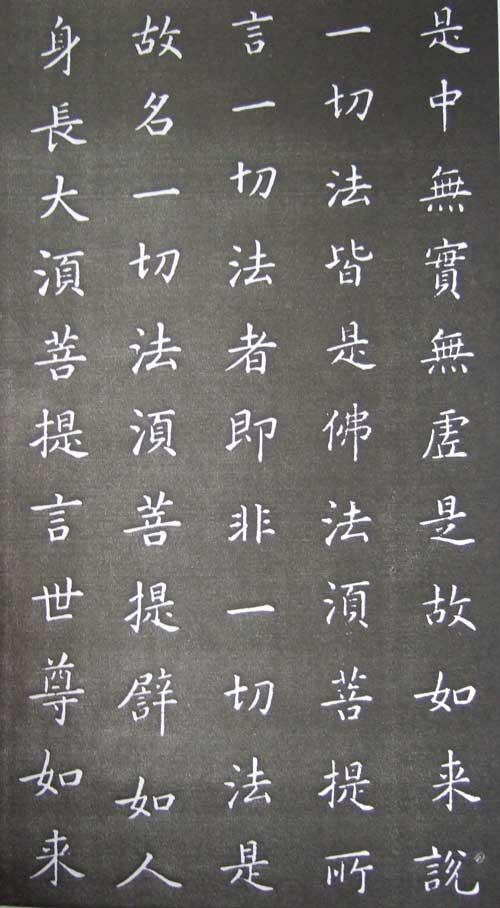 是中無實無虛是故如来說
一切法皆是佛法須菩提所
言一切法者即非一切法是
故名一切法須菩提譬如人
身長大須菩提言世尊如来